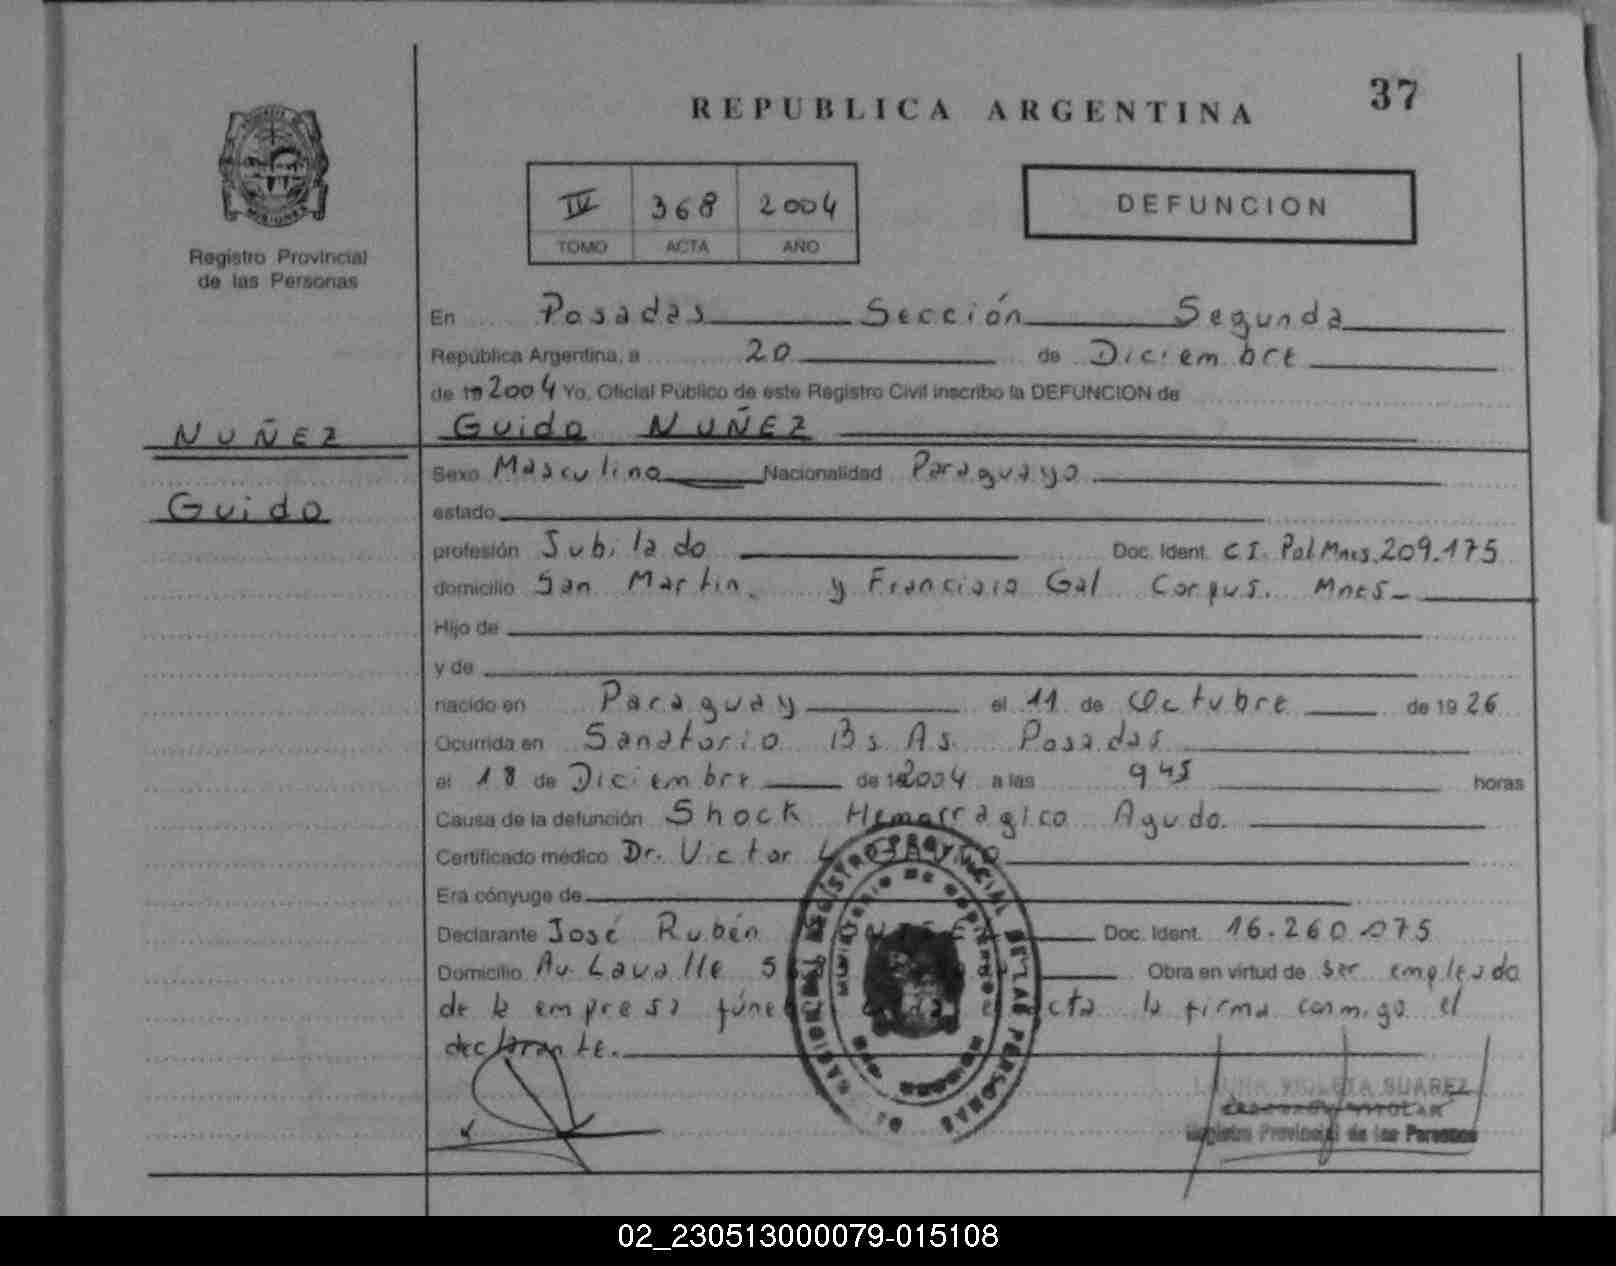 37
REPUBLICA ARGENTINA
MISIONES
Registro Provincial
de las Personas
IV 368 2004
TOMO ACTA AÑO
DEFUNCION
En Posadas Sección Segunda
República Argentina, a 20 de Diciembre
de 19 2004 Yo, Oficial Público de este Registro Civil inscribo la DEFUNCION de
NUÑEZ
Guido NUÑEZ
Guido
Sexo Masculino Nacionalidad Paraguayo
estado
profesión Jubilado Doc. Ident. C.I. Pol Mnes. 209.175
domicilio San Martin y Francisco Gal Corpus. Mnes
Hijo de
y de
nacido en Paraguay el 11 de Octubre de 19 26
Ocurrida en Sanatorio Bs As. Posadas
el 18 de Diciembre de 19 2004 a las 9 45 horas
Causa de la defunción Shock Hemorragico Agudo.
Certificado médico Dr. Victor
Era cónyuge de
Declarante José Rubén Doc. Ident. 16.260.075
Domicilio Av. Lavalle 5 Obra en virtud de ser empleado
de la empresa la firma conmigo el
declarante.
REGISTRO PROVINCIAL DE LAS PERSONAS
VIOLETA SUAREZ
Registro Provincial de las Personas
02_230513000079-015108